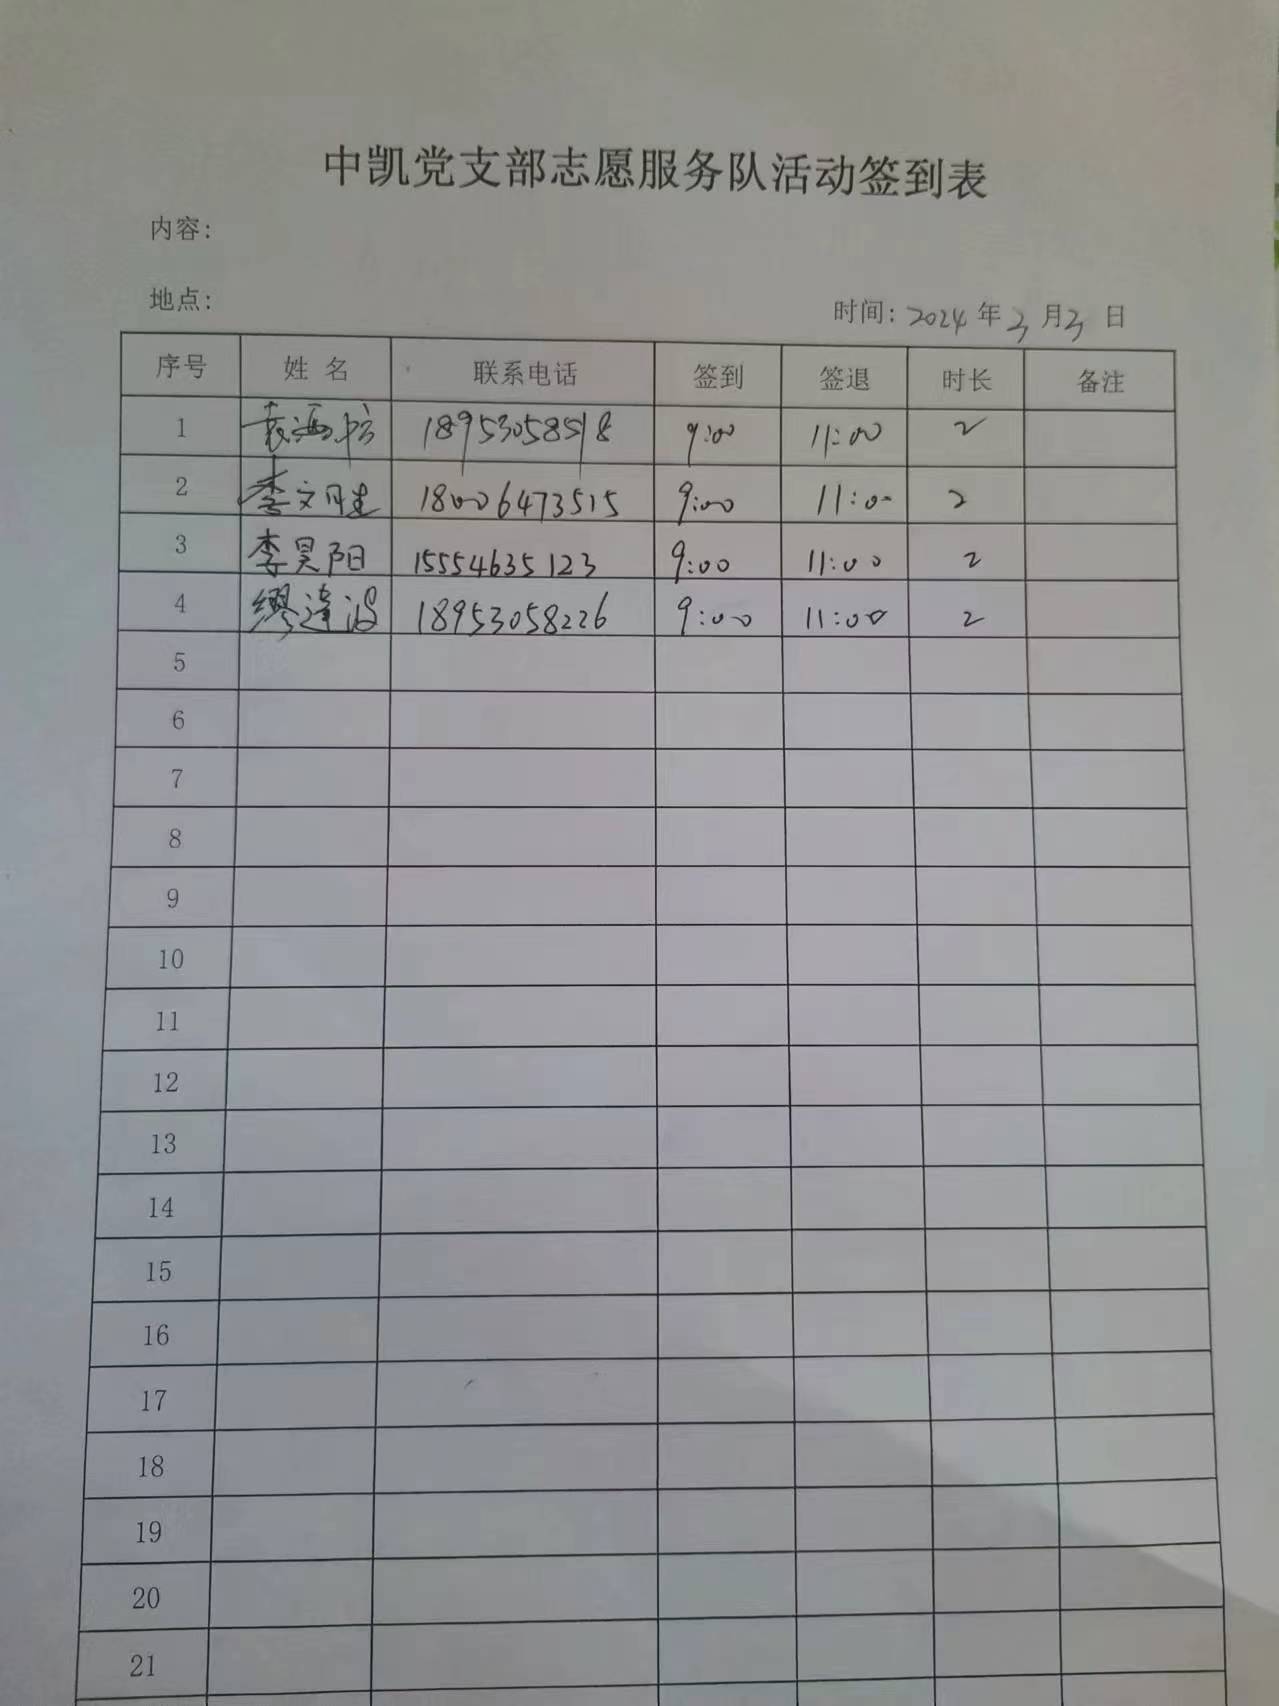 中凯党支部志愿服务队活动签到表
内容：
地点：
时间：2024年3月3日
序号 姓名 联系电话 签到 签退 时长 备注
1 18953058518 9:00 11:00 2
2 李文胜 18006473515 9:00 11:00 2
3 李昊阳 15554635123 9:00 11:00 2
4 缪达波 18953058226 9:00 11:00 2
5
6
7
8
9
10
11
12
13
14
15
16
17
18
19
20
21